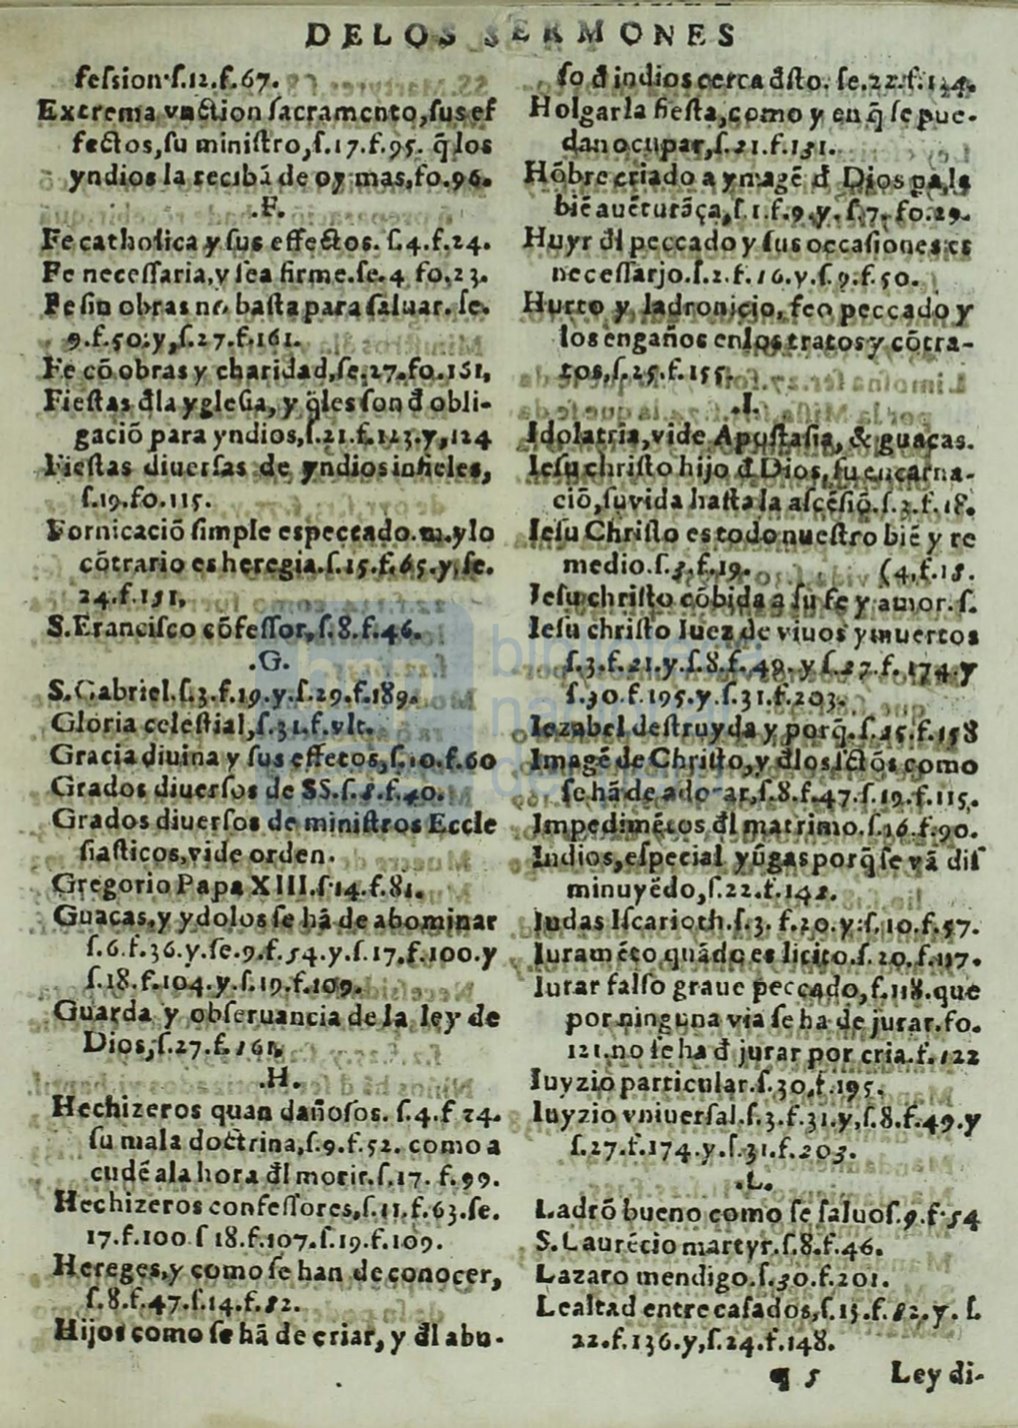 DE LOS SERMONES
fession·ſ.12.f.67.
Extrema vnction ſacramento,ſus ef
fectos,ſu miniſtro,ſ.17.f.95. q̃ los
yndios la recibã de oy mas,fo.96.
.F.
Fe catholica y ſus effectos. ſ.4.f.24.
Fe neceſſaria,y ſea firme.ſe.4 fo.23.
Fe ſin obras no baſta para ſaluar. ſe.
9.f.50.y,ſ.27.f.161.
Fe cõ obras y charidad,ſe.27.fo.161,
Fieſtas đla ygleſia, y q̃les ſon đ obli-
gaciõ para yndios,ſ.21.f.123.y,124
Fieſtas diuerſas de yndios infieles,
ſ.19.fo.115.
Fornicaciõ ſimple es peccado.m.y lo
cõtrario es heregia.ſ.15.f.65.y,ſe.
24.f.151,
S.Franciſco cõfeſſor,ſ.8.f.46.
.G.
S.Gabriel.ſ.3.f.19.y.ſ.29.f.189.
Gloria celeſtial,ſ.31.f.vlt.
Gracia diuina y ſus effetos,ſ.10.f.60
Grados diuerſos de SS.ſ.8.f.40.
Grados diuerſos de miniſtros Eccle
ſiaſticos,vide orden.
Gregorio Papa XIII.ſ·14.f.81.
Guacas,y ydolos ſe hã de abominar
ſ.6.f.36.y.ſe.9.f.54.y.ſ.17.f.100.y
ſ.18.f.104.y.ſ.19.f.109.
Guarda y obſeruancia de la ley de
Dios,ſ.27.f.161.
.H.
Hechizeros quan dañoſos. ſ.4.f 24.
ſu mala doctrina,ſ.9.f.52. como a
cudẽ ala hora đl morir.ſ.17. f.99.
Hechizeros confeſſores,ſ.11.f.63.ſe.
17.f.100 ſ 18.f.107.ſ.19.f.109.
Hereges,y como ſe han de conocer,
ſ.8.f.47.ſ.14.f.82.
Hijos como ſe hã de criar, y đl abu-
ſo đ indios cerca đſto. ſe.22.f.134.
Holgar la fieſta,como y en q̃ ſe pue-
dan ocupar,ſ.21.f.131.
Hõbre criado a ymagẽ đ Dios pa,la
biẽ auẽturãça,ſ.1.f.9.y.ſ.7.fo.29.
Huyr đl peccado y ſus occaſiones es
neceſſario.ſ.2.f.16.y.ſ.9.f.50.
Hurto y ladronicio, feo peccado y
los engaños en los tratos y cõtra-
tos,ſ.25.f.155.
.I.
Idolatria,vide Apoſtaſia, & guacas.
Ieſu chriſto hijo đ Dios, ſu encarna-
ciõ,ſu vida haſta la aſcẽſiõ.ſ.3.f.18.
Ieſu Chriſto es todo nueſtro biẽ y re
medio.ſ.3.f.19. (4.f.15.
Ieſu chriſto cõbida a ſu fe y amor. ſ.
Ieſu chriſto Iuez de viuos y muertos
ſ.3.f.21.y.ſ.8.f.49.y ſ.27.f.174.y
ſ.30.f.195.y.ſ.31.f.203.
Iezabel deſtruyda y porq̃.ſ.25.f.158
Imagẽ de Chriſto,y đlos ſctõs como
ſe hã de adorar,ſ.8.f.47.ſ.19.f.115.
Impedimẽtos đl matrimo.ſ.16.f.90.
Indios,eſpecial yũgas porq̃ ſe vã diſ
minuyẽdo,ſ.22.f.142.
Iudas Iſcarioth.ſ.3. f.20.y.ſ.10.f.57.
Iuramẽto quãdo es licito.ſ.20.f.117.
Iurar falſo graue peccado,f.118.que
por ninguna via ſe ha de jurar.fo.
121.no ſe ha đ jurar por cria.f.122
Iuyzio particular.ſ.30.f.195.
Iuyzio vniuerſal.ſ.3.f.31.y,ſ.8.f.49.y
ſ.27.f.174.y.ſ.31.f.203.
.L.
Ladrõ bueno como ſe ſaluo ſ.9.f·54
S.Laurẽcio martyr.ſ.8.f.46.
Lazaro mendigo.ſ.30.f.201.
Lealtad entre caſados,ſ.15.f.82.y. ſ.
22.f.136.y,ſ.24.f.148.
¶ 5 Ley di-